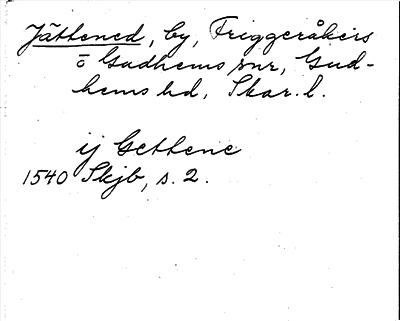 Jättened, by, Friggeråkers
o Gudhems snr, Gud-
hems hd, Skar. l.
ij Gettene
1540 Skjb, s. 2.